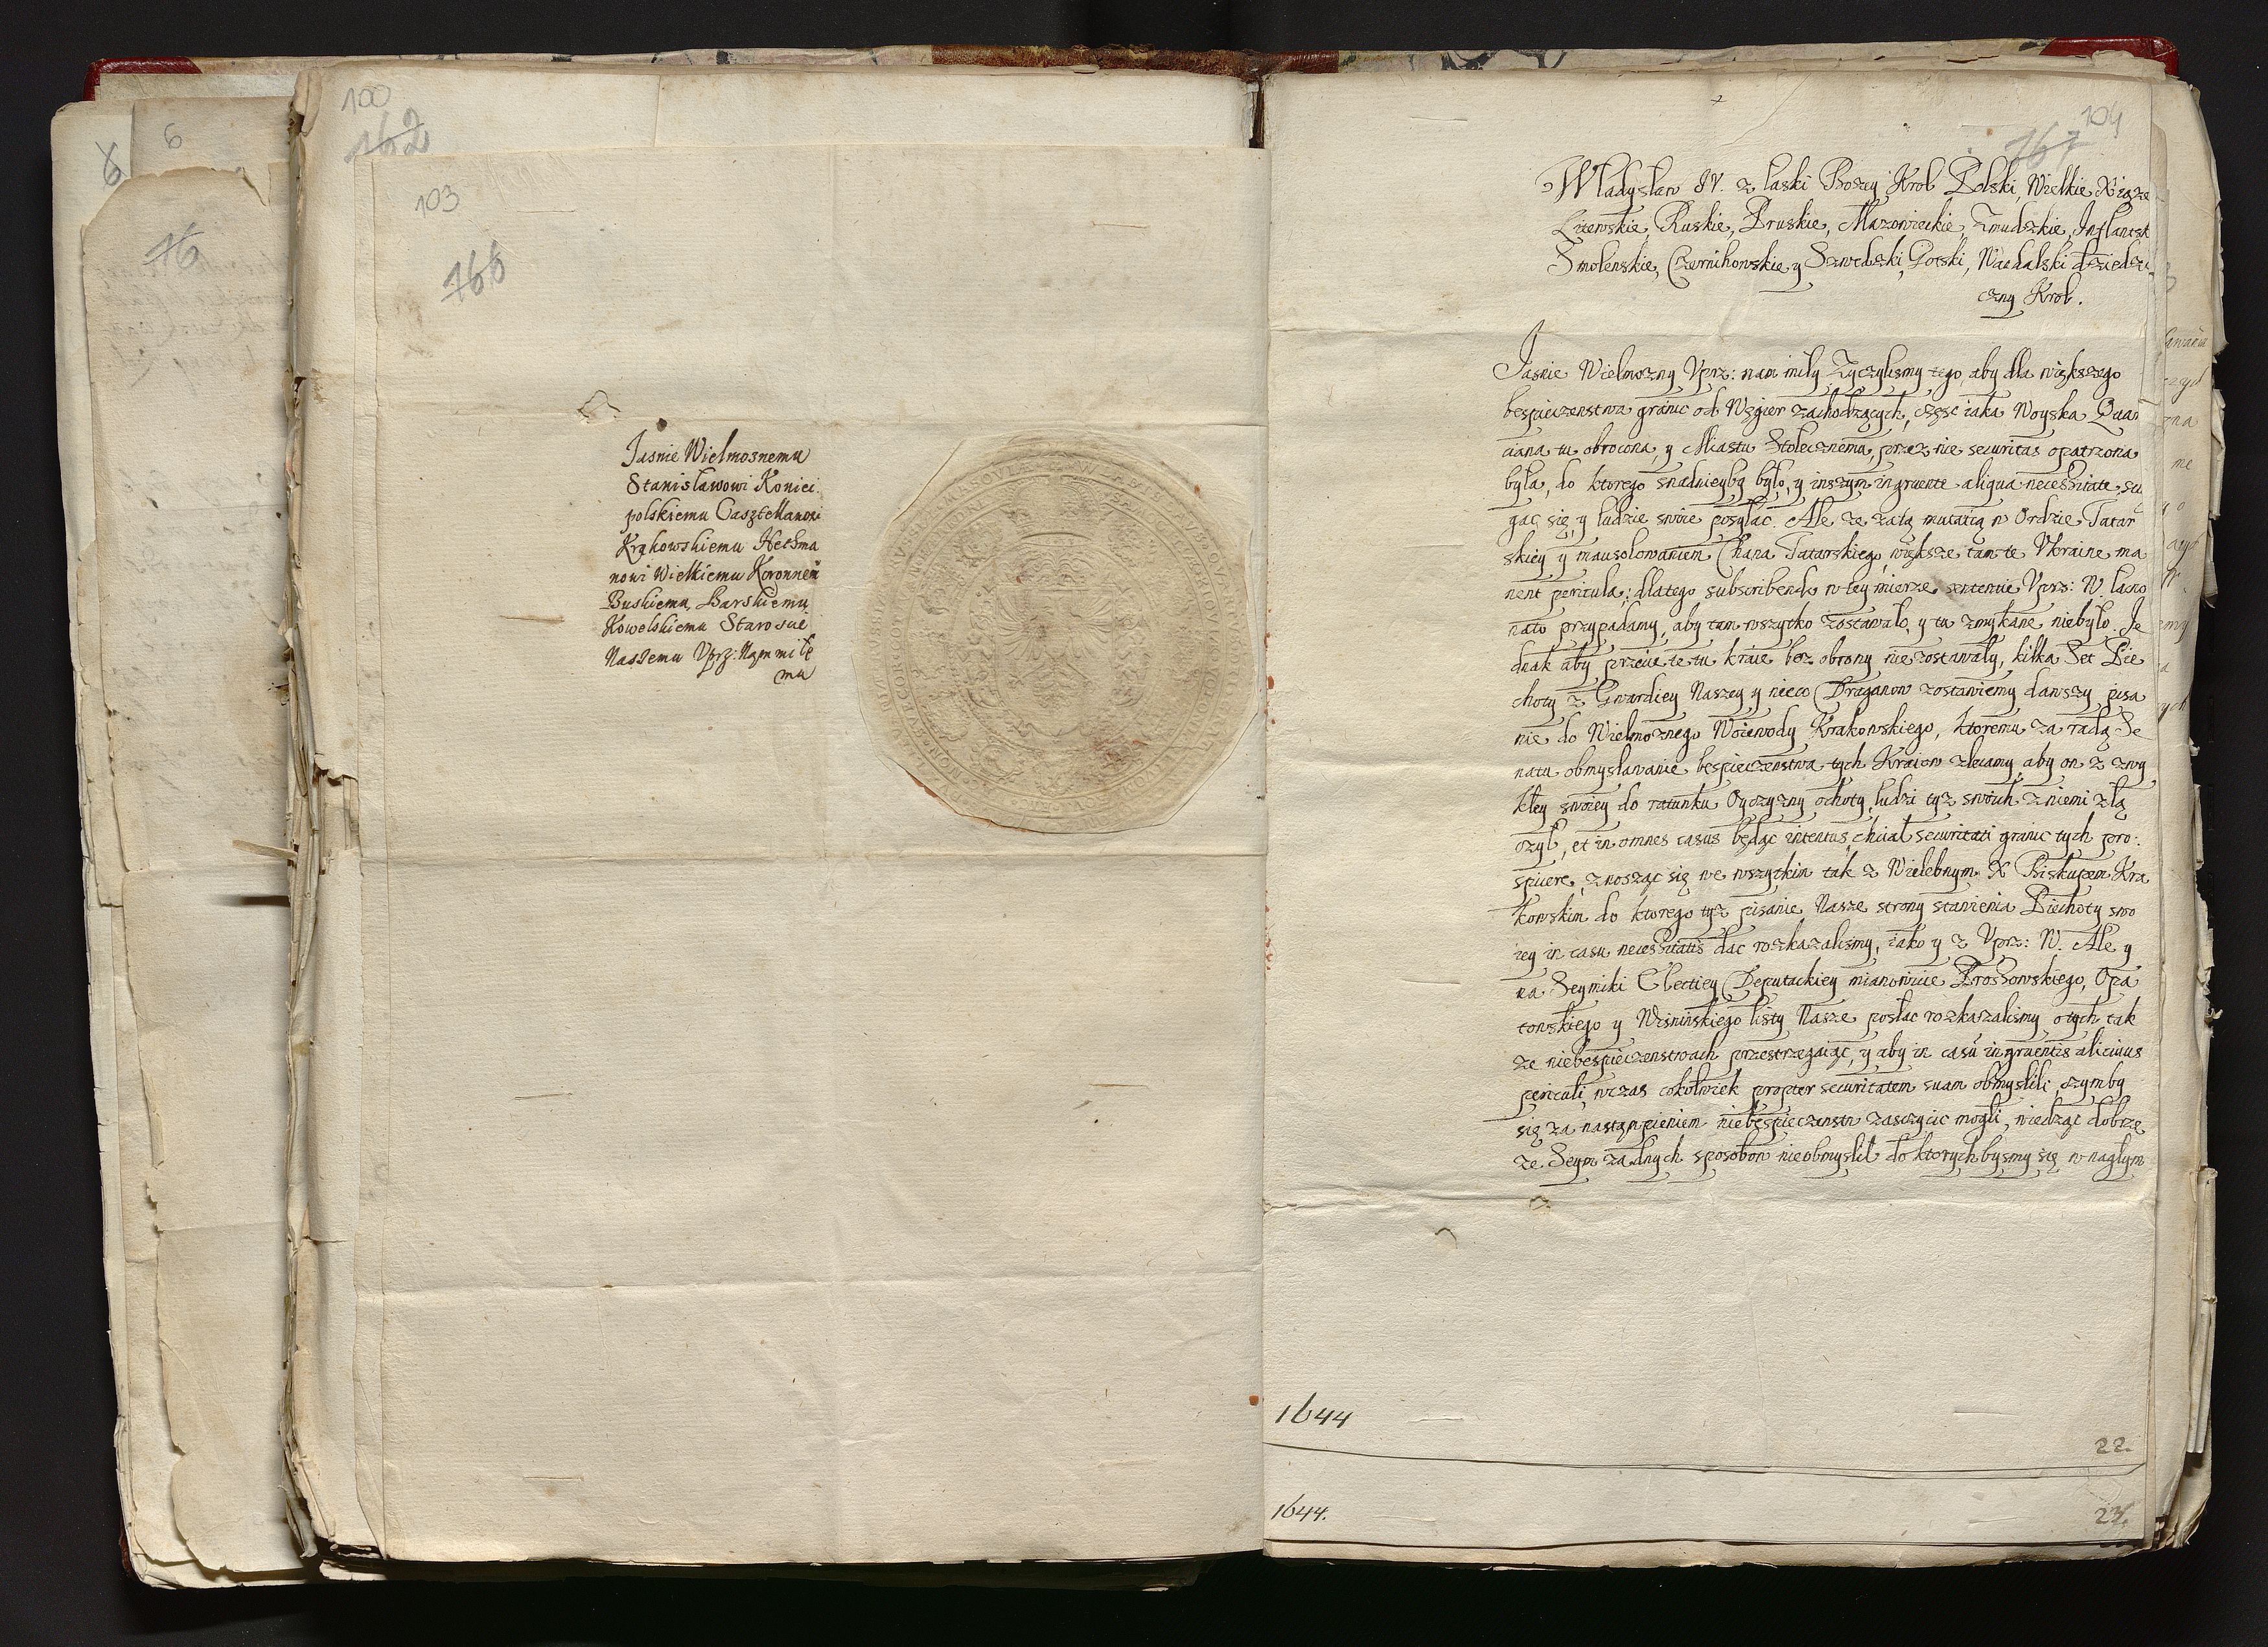 6
6
16
100
162
103
166
Jasnie Wielmoznemu
Stanisławowi Koniec
polskiemu Casztellanowi
Krakowskiemu Hethma
nowi Wielkiemu Koronnem
Buskiemu, Barskiemu
Kowelskiemu Staroscie
Naszemu Uprz: Nam miłe
mu
104
167
Władysław IV. z łaski Bozey Krol Polski, Wielkie Xiąze
Litewskie, Ruskie, Pruskie, Mazowieckie, Zmudzkie, Inflantsk
Smolenskie, Czernihowskie y Szwedzki, Gotski, Wandalski dziedzi
czny Krol.
Jasnie Wielmozny Vprz: nam miły Zyczylismy tego, aby dla większego
bespieczenstwa granic od Węgier zachodzących, częsc iaka Woyska Quar
ciana tu obrocona, y Miastu Stołecznemu, przez nie securitas opatrzona
była, do ktorego snadnieyby było, y inszym ingruente aliqua necessitate, su
gac się, y ludzie swoie posyłac. Ale ze zatą mutatią w Ordzie Tatar
skiey y mansolowaniem Chana Tatarskiego, większe tamte Vkraine ma
nent pericula; dlatego subscribendo w tey mierze sententie Vprz: W. łacno
nato przypadamy, aby tam wszytko zostawało, y tu zmykane niebyło. Je
dnak aby przecie te tu kraie bez obrony nie zostawały, kilka Set Pie
choty z Gwardiey Naszey y nieco Draganow zostawiemy dawszy pisa
nie do Wielmoznego Woiewody Krakowskiego, ktoremu za radą Se
natu obmyslawanie bespieczenstwa tych Kraiow zlecamy, aby on z zwy
kłey swoiey do ratunku Oyczyzny ochoty, ludzi tyz swoich z niemi złą
czył, et in omnes casus będąc intentus chciał securitati granic tych pro:
spicere, znosząc się we wszytkim tak z Wielebnym X Biskupem Kra
kowskim do ktorego tyz pisanie Nasze strony stawienia Piechoty swo
iey in casu necessitatis dac rozkazalismy, iako y z Vprz: W. Ale y
na Seymiki Electiey Deputackiey mianowicie Proszowskiego, Opa
towskiego y Wisninskiego listy Nasze posłac rozkazalismy o tych tak
ze niebespieczenstwach przestrzegaiąc, y aby in casu ingruentis alicuius
periculi, wczas cokolwiek propter securitatem suam obmyslili, czymby
się za nastąmpieniem niebespieczenstw zasczycic mogli, wiedząc dobrze
ze Seym zadnych sposobow nieobmyslił do ktorych bysmy się w nagłym
1644
22.
1644.
23.